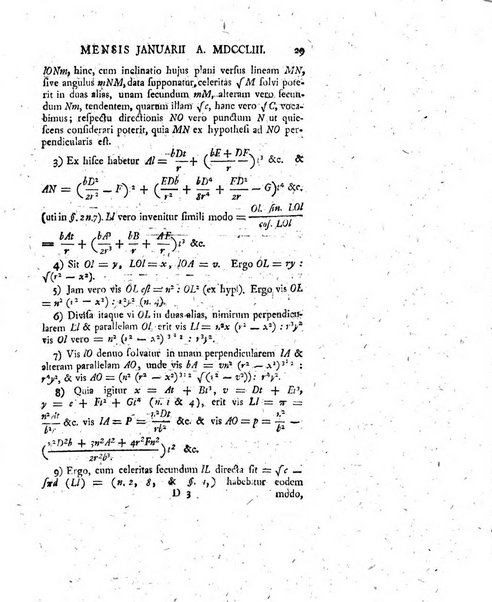 MENSIS JANUARII A. MDCCLIII. 29
lONm, hinc, cum inclinatio hujus plani versus lineam MN,
sive angulus mNM, data supponatur, celeritas √M solvi pote-
rit in duas alias, unam secundum mM, alteram vero secun-
dum Nm, tendentem, quarum illam √c, hanc vero √C, voca-
bimus; respectu directionis NO vero punctum N ut quie-
scens considerari poterit, quia MN ex hypothesi ad NO per-
pendicularis est.
3) Ex hisce habetur Al = −bDt/r + (bE + DF/r) t³ &c. &
AN = (bD²/2r² − F) t² + (EDb/r² + bD⁴/8r⁴ + FD²/2r² − G) t⁴ &c.
(uti in §. 2 n. 7). Ll vero invenitur simili modo = Ol. sin. LOl / cos. LOl
= bAt/r + (bA³/2r³ + bB/r + AF/r) t³ &c.
4) Sit Ol = y, LOl = x, lOA = v. Ergo OL = ry :
√(r² − x²).
5) Jam vero vis OL est = n² : OL² (ex hyp!). Ergo vis
OL = n² (r² − x²) : r²y² (n. 4).
6) Divisa itaque vi OL in duas alias, nimirum perpendicu-
larem Ll & parallelam Ol, erit vis Ll = n²x (r² − x²) : r³y²
vis Ol vero = n² (r² − x²)³:² : r³y².
7) Vis lO denuo solvatur in unam perpendicularem lA &
alteram parallelam AO, unde vis lA = vn² (r² − x²)³:² :
r⁴y², & vis AO = (n² (r² − x²)³:² √(r² − v²)) : r⁴y².
8) Quia igitur x = At + Bt³, v = Dt + Et³,
y = b + Ft² + Gt⁴ (n. 1 & 4), erit vis Ll = π =
n²At/b² &c. vis lA = P = n²Dt/b² &c. vis AO = p = n²/b² −
(n²D²b + 3n²A² + 4n²Fr²/2r²b³) t² &c.
9) Ergo, cum celeritas secundum lL directa sit = √c −
∫πd (Ll) = (n. 2, 8, & §. 1,) habebitur eodem
D 3 modo,